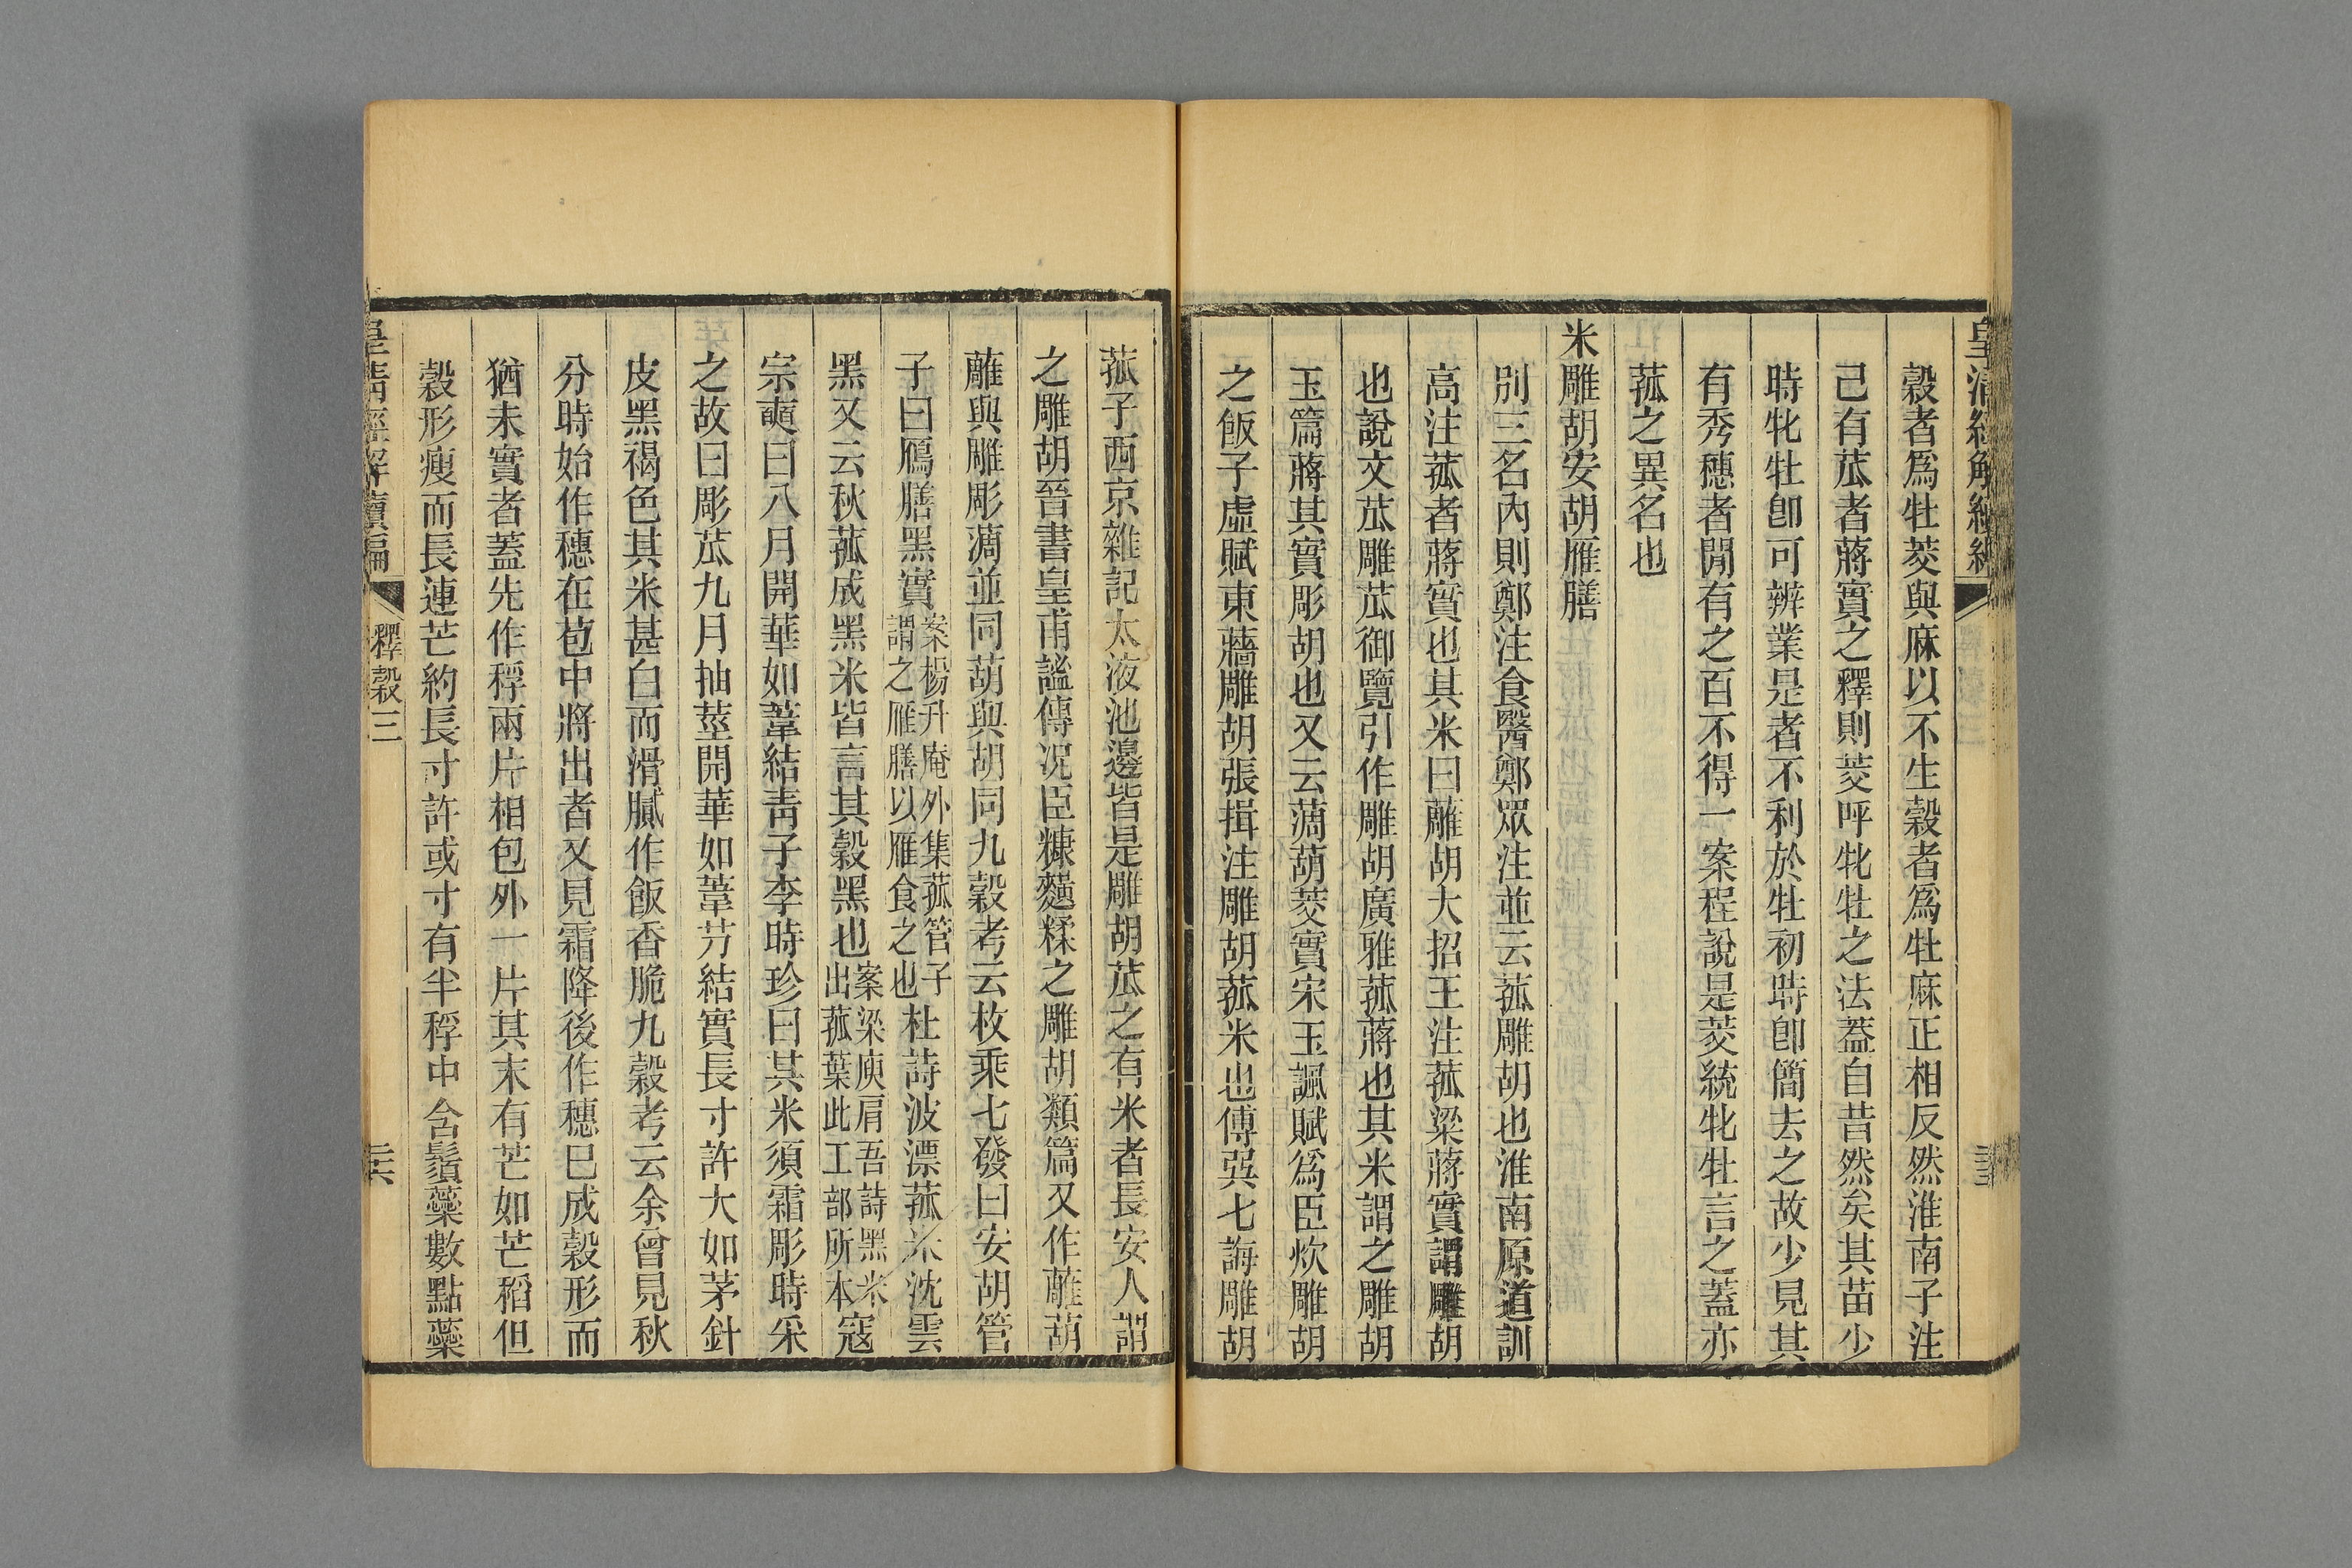 皇清經解續編
穀者爲牡茭與麻以不生穀者爲牡麻正相反然淮南子注
己有苽者蔣實之釋則茭呼牝牡之法蓋自昔然矣其苗少
時牝牡卽可辨業是者不利於牡初時卽簡去之故少見其
有秀穗者閒有之百不得一案程說是茭統牝牡言之蓋亦
菰之異名也
米雕胡安胡雁膳
別三名內則鄭注食醫鄭眾注並云菰雕胡也淮南原道訓
高注菰者蔣實也其米曰蘸胡大招王注菰粱蔣實謂雕胡
也說文苽雕苽御覽引作雕胡廣雅菰蔣也其米謂之雕胡
玉篇蔣其實彫胡也又云蔐葫茭實宋玉諷賦爲臣炊雕胡
之飯子虛賦東蘠雕胡張揖注雕胡菰米也傅㢲七誨雕胡
菰子西京雜記太液池邊皆是雕胡苽之有米者長安人謂
之雕胡晉書皇甫謐傳况臣糠䴴糅之雕胡類篇又作蘸葫
蘸與雕彫蔐並同葫與胡同九穀考云枚乘七發曰安胡管
子曰鴈膳黑實案楊升庵外集菰管子謂之雁膳以雁食之也杜詩波漂菰米沈雲
黑又云秋菰成黑米皆言其穀黑也案梁庾肩吾詩黑米出菰葉此工部所本寇
宗奭曰八月開華如葦結靑子李時珍曰其米須霜彫時采
之故曰彫苽九月抽莖開華如葦芀結實長寸許大如茅針
皮黑褐色其米甚白而滑膩作飯香脆九穀考云余曾見秋
分時始作穗在苞中將出者又見霜降後作穗巳成穀形而
猶未實者蓋先作稃兩片相包外一片其末有芒如芒稻但
穀形瘦而長連芒約長寸許或寸有半稃中含鬚蘂數點蘂
皇清經解續編 釋穀三